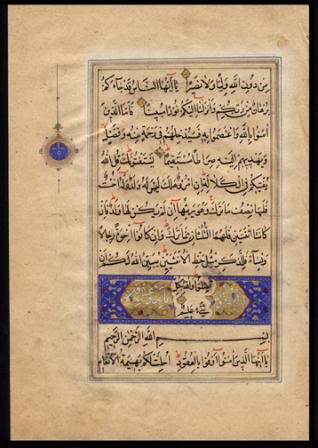 من دون الله وليا ولا نصيرا يا أيها الناس قد جاءكم
برهان من ربكم وأنزلنا إليكم نورا مبينا فأما الذين
آمنوا بالله واعتصموا به فسيدخلهم في رحمة منه وفضل
ويهديهم إليه صراطا مستقيما يستفتونك قل الله
يفتيكم في الكلالة إن امرؤ هلك ليس له ولد وله أخت
فلها نصف ما ترك وهو يرثها إن لم يكن لها ولد فإن
كانتا اثنتين فلهما الثلثان مما ترك وإن كانوا إخوة رجالا
ونساء فللذكر مثل حظ الأنثيين يبين الله لكم أن
تضلوا والله بكل
شيء عليم
بسم الله الرحمن الرحيم
يا أيها الذين آمنوا أوفوا بالعقود أحلت لكم بهيمة الأنعام